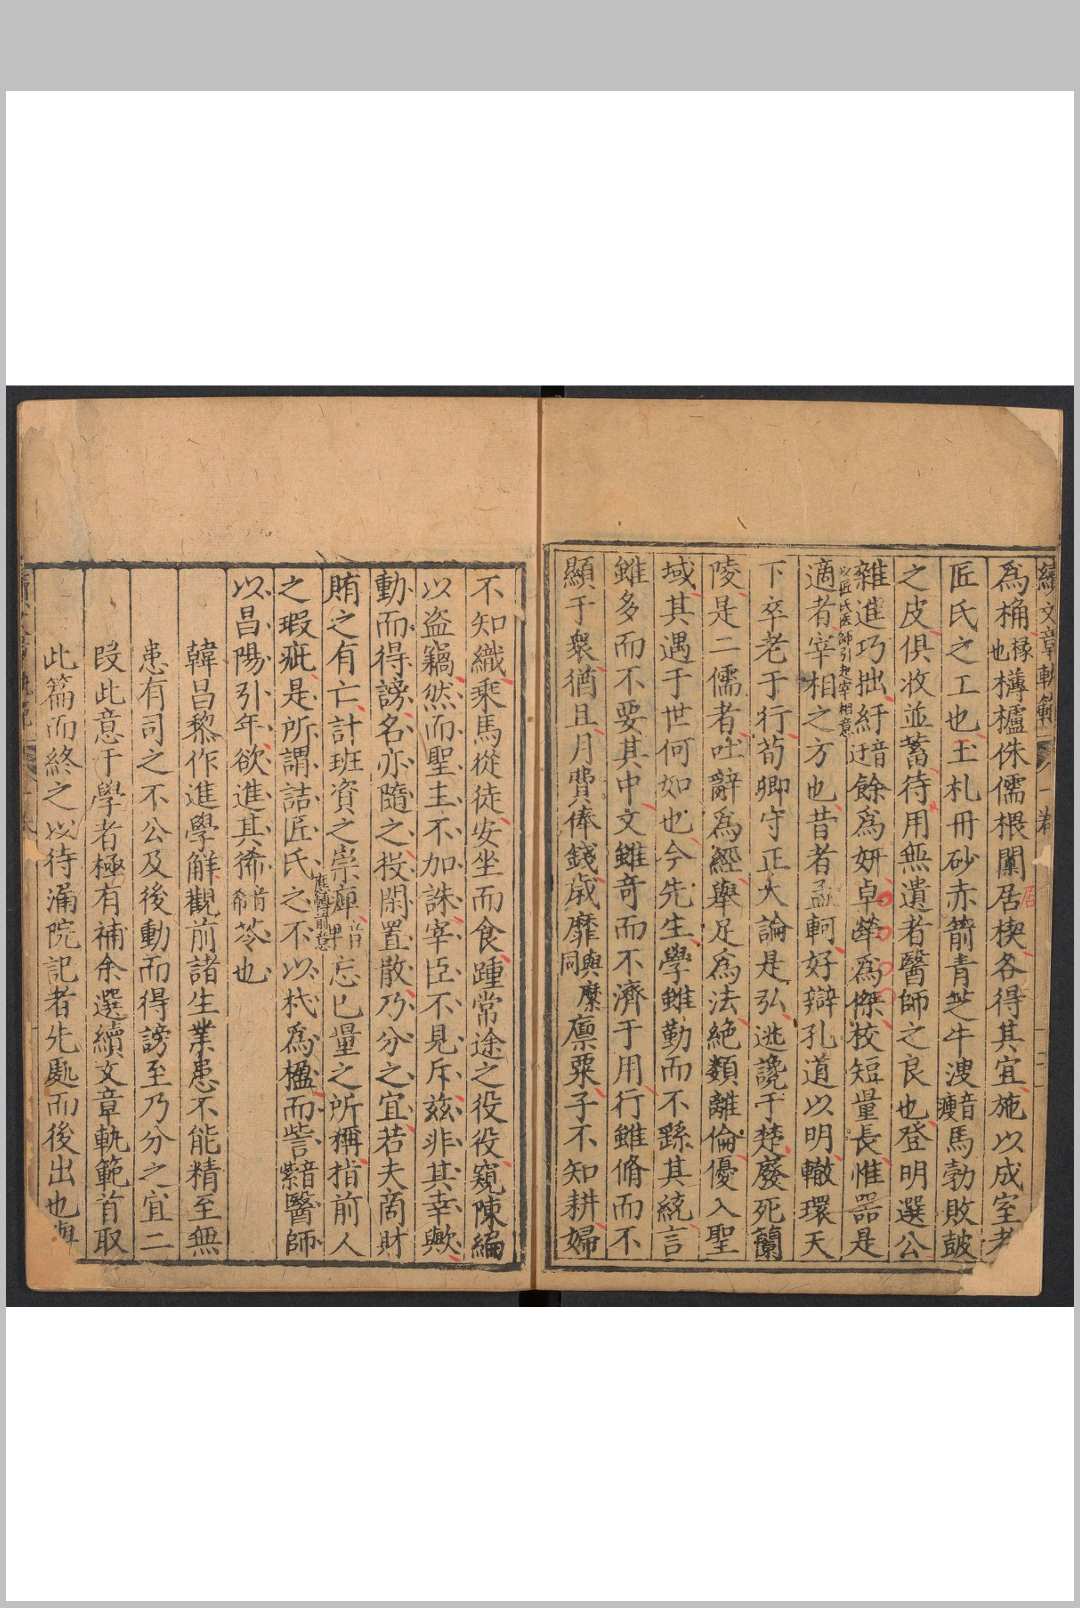 續文章軌範 一卷
為桷椽也欂櫨侏儒椳闑居楔各得其宜施以成室者
匠氏之工也玉札丹砂赤箭青芝牛溲音瘦馬勃敗皷
之皮俱收並蓄待用無遺者醫師之良也登明選公
雜進巧拙紆音迂餘為妍卓犖為傑校短量長惟器是
適者宰相之方也以匠氏醫師引起宰相意昔者孟軻好辯孔道以明轍環天
下卒老于行荀卿守正大論是弘逃讒于楚廢死蘭
陵是二儒者吐辭為經舉足為法絶類離倫優入聖
域其遇于世何如也今先生學雖勤而不繇其統言
雖多而不要其中文雖竒而不濟于用行雖脩而不
顯于衆猶且月費俸錢歲靡與糜同廪粟子不知耕婦
不知織乘馬從徒安坐而食踵常途之役役窺陳編
以盗竊然而聖主不加誅宰臣不見斥兹非其幸歟
動而得謗名亦隨之投閑置散乃分之宜若夫商財
賄之有亡計班資之崇庳音卑忘已量之所稱指前人
之瑕疵是所謂詰匠氏之不以杙為楹而訾音紫醫師
以昌陽引年欲進其豨音希苓也
韓昌黎作進學解觀前諸生業患不能精至無
患有司之不公及後動而得謗至乃分之宜二
段此意于學者極有補余選續文章軌範首取
此篇而終之以待漏院記者先處而後出也與